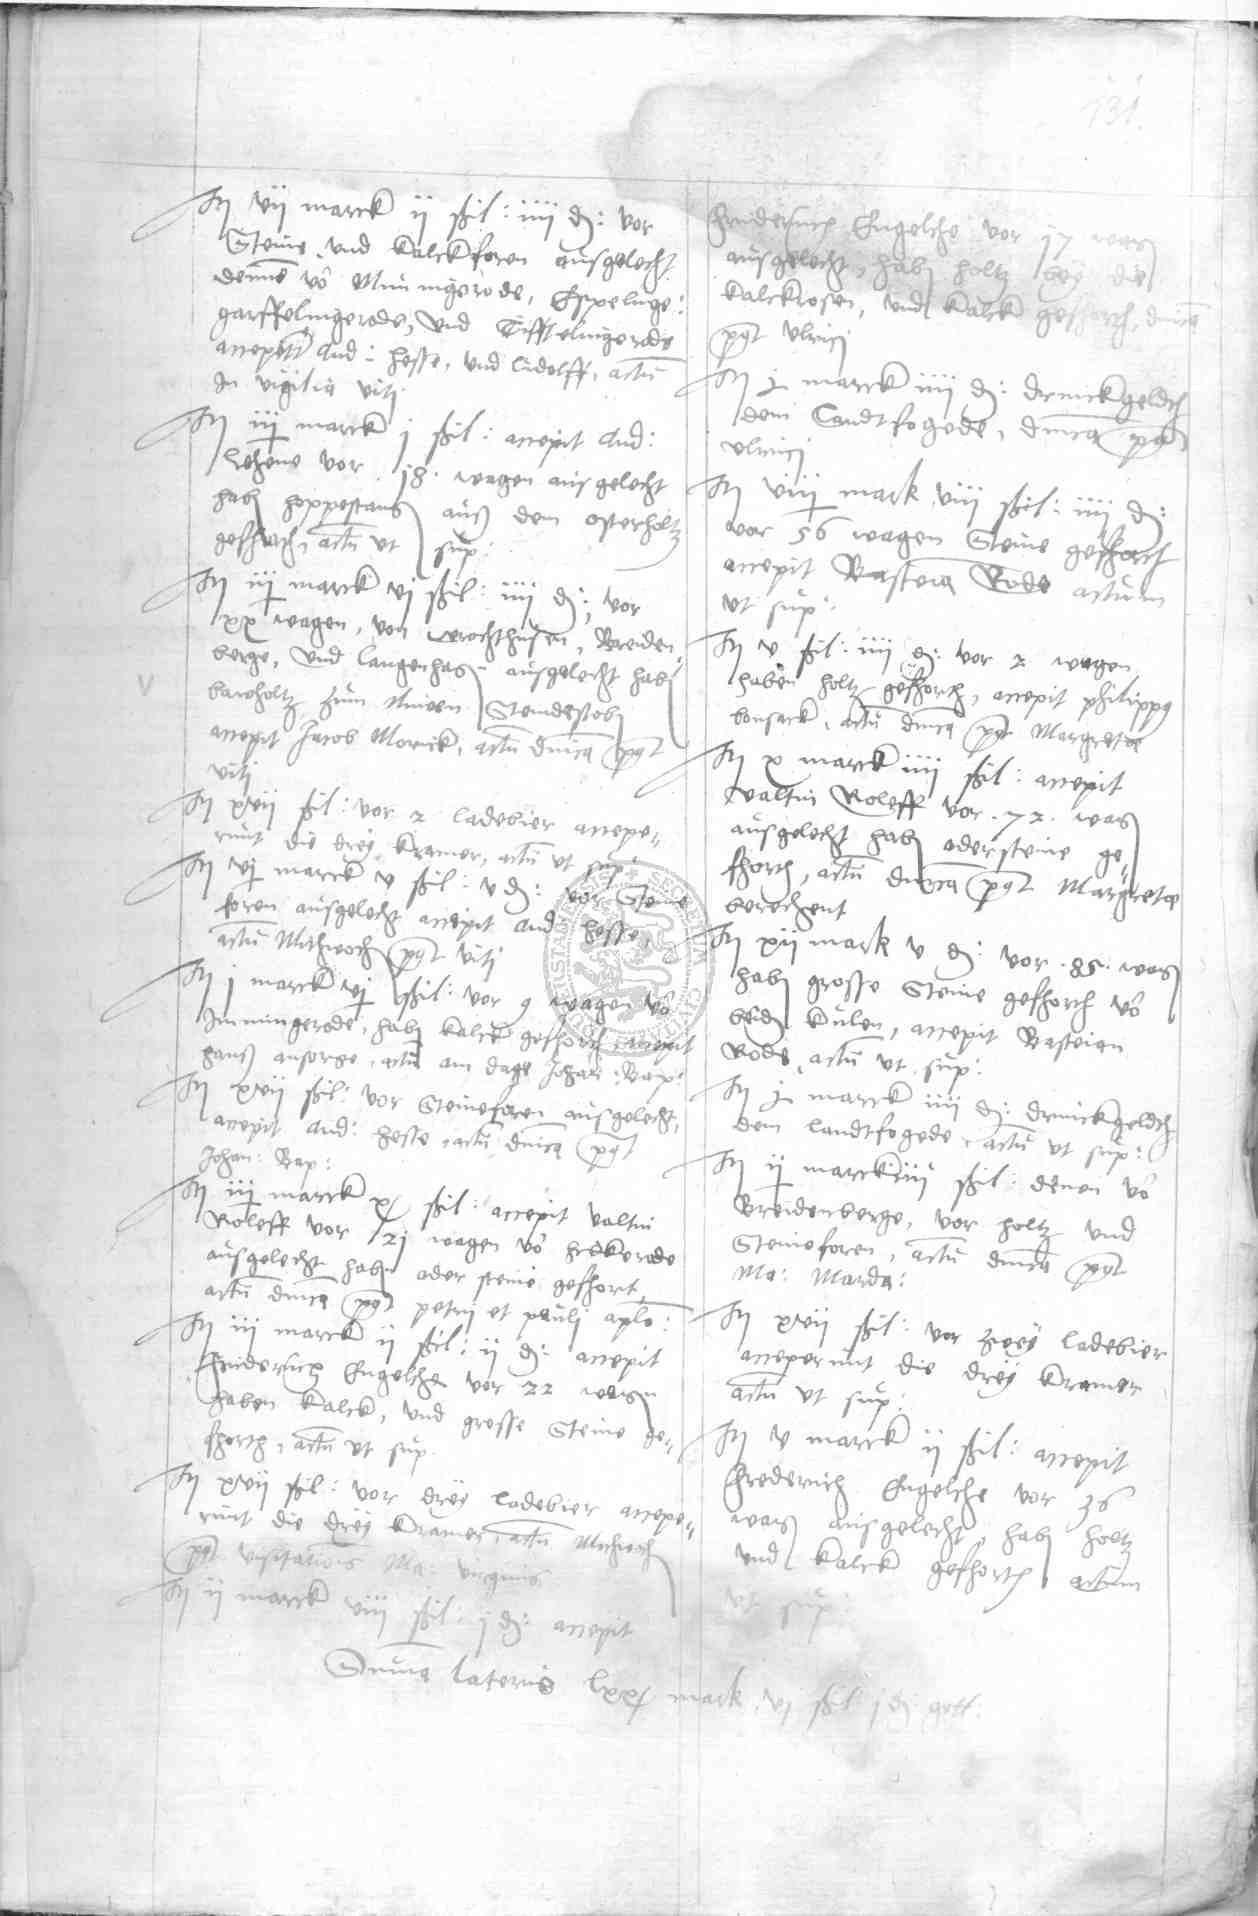 131.
Itɱ vij marck ij ßil: iiij d: vor
Steine und kalckforen ausgelecht
denne võ Mimigerode, Espelinge:
garffelingerode, und Tifftelingerode
acceper̃t And: Hesse, und ludolff, actũ
in vigilia viti
Itɱ iij marck j ßil: accepit And:
Lehene vor 18. wagen ausgelecht
habɱ hoppestang auß dem osterholtz
gefhorth, actũ ut sup:
Itɱ iij marck vj ßil: iiij d: vor
xx wagen, von Brochthusen, Breiden
berge, und langenhagɱ ausgelecht habɱ
bawholtz zum nuwen
accepit Jacob Morick, actũ dñica pꝰt
viti
Itɱ xvij ßil: vor 2 ladebier accepe„
runt die drey kramer, actũ ut sup:
Itɱ vj marck v ßil: v d: vor Steine
foren ausgelecht accepit And: Hesse,
actũ Mithwoch pꝰt viti
Itɱ j marck vj ßil: vor 9 wagen võ
Immingerode, habɱ kalck gefhorth, accepit
hanß ansorge, actũ am dage Johan: Bap:
Itɱ xvij ßil: vor Steineforen ausgelecht,
accepit And: Hesse, actũ dñica pꝰt
Johan: Bap:
Itɱ iij marck x ßil: accepit Valtin
Roleff vor 21 wagen võ
ausgelecht habɱ oder steine gefhort,
actũ dñica pꝰt petri et pauli aplo:
Itɱ iij marck ij ßil: ij d: accepit
Friderich Engelche vor 22 wagɱ
haben kalck, und grosse Steine ge„
fhorth, actũ ut sup.
Itɱ xvij ßil: vor drey ladebier accepe„
runt die drey kramer, actũ Mithwoch
pꝰt visitationis Ma: virginis
Itɱ ij marck viij ßil: j d: accepit
Friderich Engelche vor 17 wagɱ
ausgelecht, habɱ holtz bey die
kalckrosen, und kalck gefhorth, dñica
pꝰt ulrici
Itɱ marck iiij d: drinckgeldɱ
dem Landtfogede, dñica pꝰt
ulrici
Itɱ mark viij ßil: iiij d:
vor 56 wagen Steine gefhorth
accepit Bastian Rode actum
ut sup:
Itɱ v ßil: iiij d: vor 2 wagen
haben holtz gefhorth, accepit philippꝰ
bonsack, actũ dñica pꝰt Margretæ
Itɱ x marck iiij ßil: accepit
Valtin Roleff vor .72. wagɱ
ausgelecht habɱ odersteine ge„
fhorth, actũ dñica pꝰt Margretæ
berechent
Itɱ xij mark v d: vor .85. wagɱ
habɱ grosse Steine gefhorth võ
beidɱ kulen, accepit Bastian
Rode, actũ ut sup:
Itɱ marck iiij d: drinckgeldɱ
dem landtfogede, actũ ut sup:
Itɱ ij marck iiij ßil: denen võ
Breidenberge, vor holtz und
Steineforen, actũ dñica pꝰt
Ma: Magda:
Itɱ xvij ßil: vor zwey ladebier
acceperunt die drey kramer
actũ ut sup:
Itɱ v marck ij ßil: accepit
Frederich Engelche vor 36
wagɱ ausgelecht, habɱ holtz
und kalck gefhorth, actum
ut sup:
Summa lateris lxxj mark vj ßil j d gott: